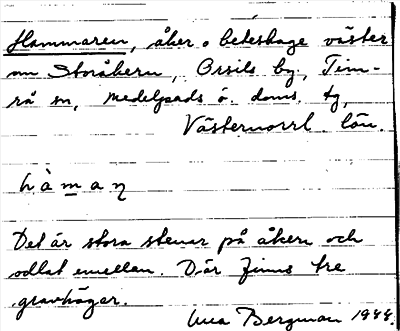 Hammaren, åker o beteshage väster
om Storåkern, Orsils by, Tim-
rå sn, Medelpads ö. doms. tg,
Västernorrl. län.
h à m a ŋ
Det är stora stenar på åkern och
odlat emellan. Där finns tre
gravhögar.
Bergman 1944.